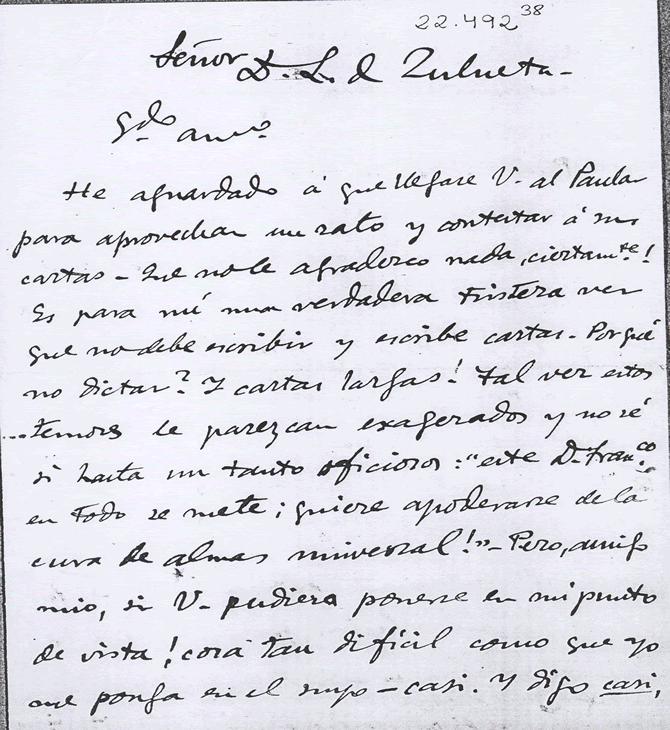 22.492 38
Señor D. L. de Zulueta-
Qdo amo
He aguardado á que llegase V. al Paular
para aprovechar un rato y contestar á sus
cartas - Que no le agradezco nada, ciertamte!
Es para mí una verdadera tristeza ver
que no debe escribir y escribe cartas. Porqué
no dictar? Y cartas largas! Tal vez estos
temores le parezcan exagerados y no sé
si hasta un tanto oficiosos: "este D. Franco
en todo se mete; quiere apoderarse de la
cura de almas universal!" - Pero, amigo
mio, si V. pudiera ponerse en mi punto
de vista! cosa tan difícil como que yo
me ponga en el suyo - casi. Y digo casi,